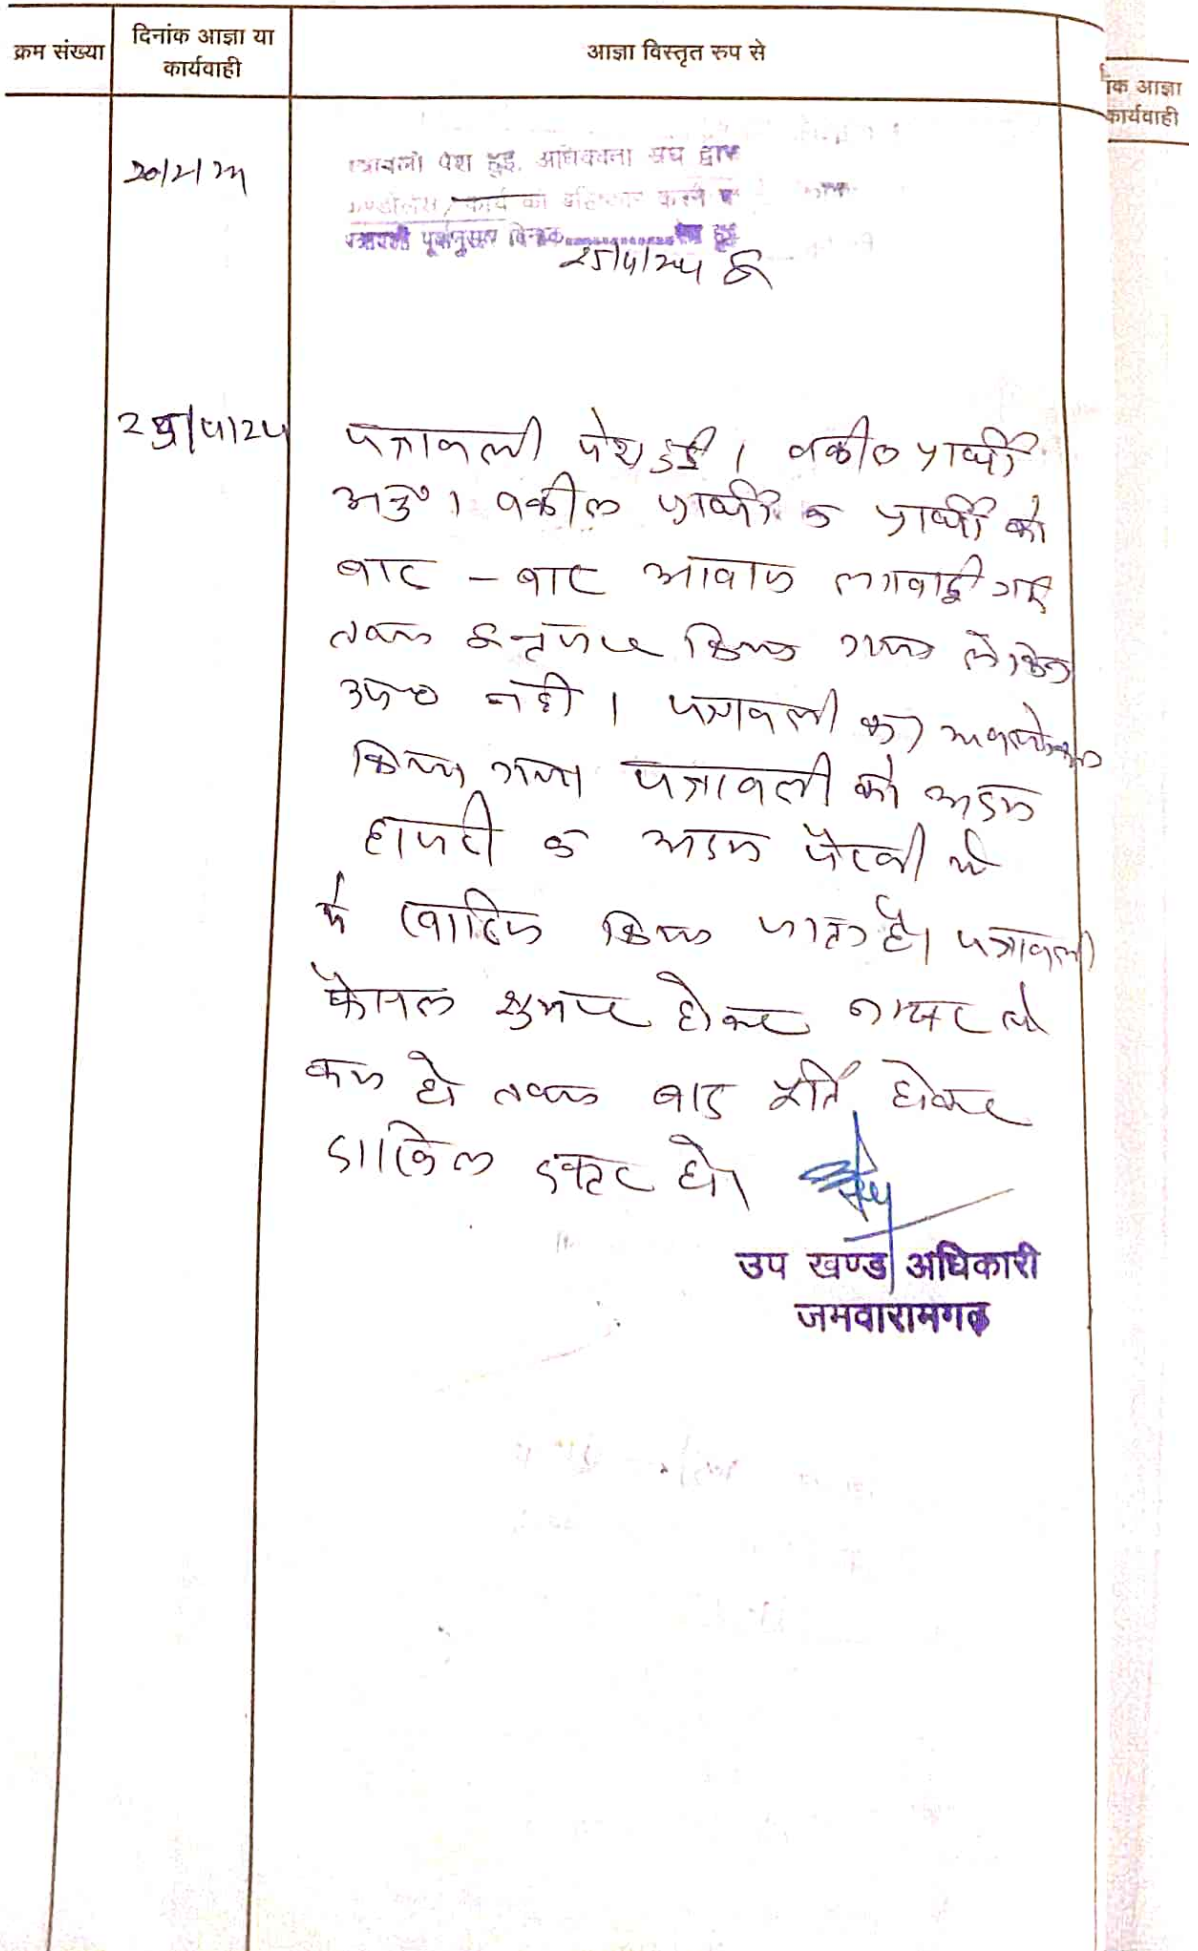 क्रम संख्या
दिनांक आज्ञा या
कार्यवाही
आज्ञा विस्तृत रुप से
आज्ञा
कार्यवाही
पेश हुई. अधिवक्ता संघ द्वारा
कार्य का बहिष्कार करने
25/4/24
पत्रावली पेश हुई। वकील प्रार्थी
अनु०। वकील प्रार्थी व प्रार्थी को
बार – बार आवाज लगवाई गई
तथा इन्तजार किया गया लेकिन
उप० नही। पत्रावली का अवलोकन
किया गया पत्रावली को अदम
हाजरी व अदम पैरवी में
में खारिज किया जाता है। पत्रावली
फैसल शुमार होकर नम्बर से
कम हो तथा बाद पूर्ति होकर
दाखिल दफ्तर हो।
उप खण्ड अधिकारी
जमवारामगढ